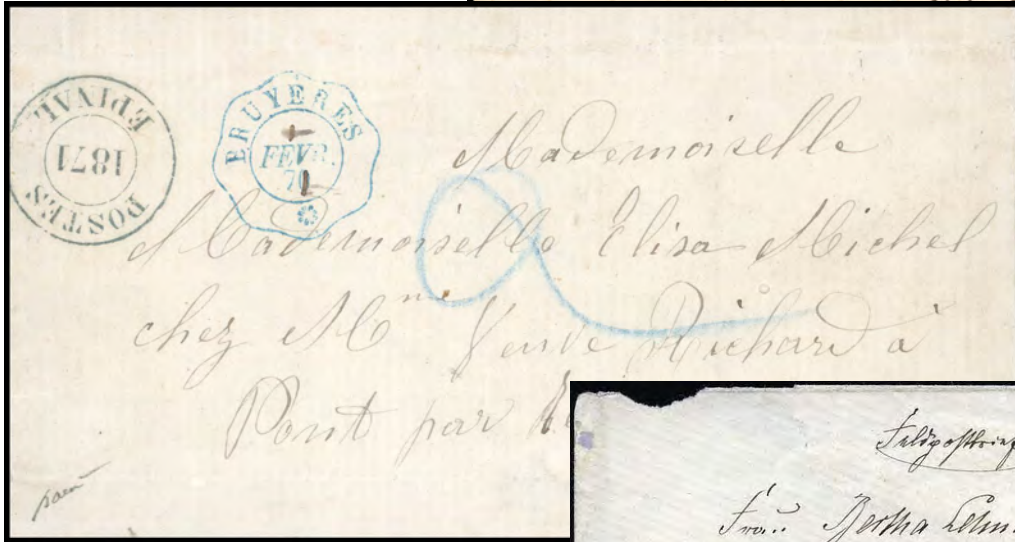 EPINAL
1871
POSTES
BRUYERES
FEVR.
70
Mademoiselle
Mademoiselle Elisa Michel
chez Mme Veuve Richard à
Pont par
Feldpostbrief
Bertha